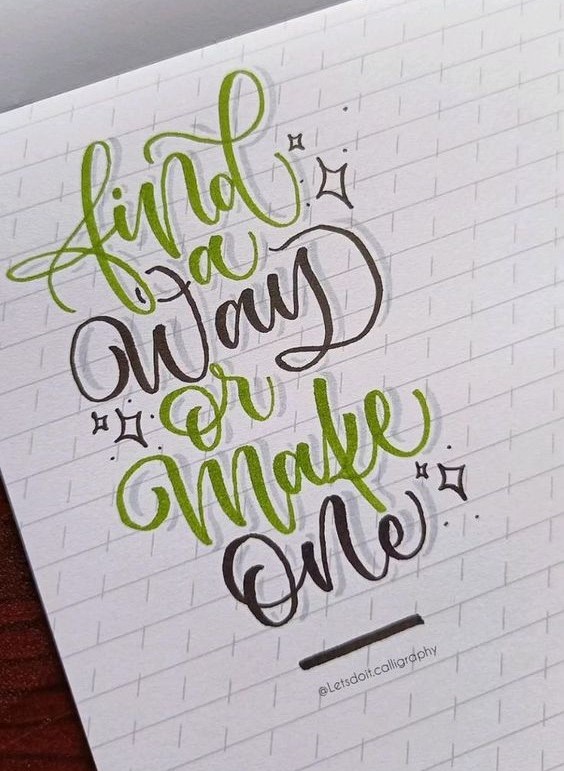 find
a
Way
or
Make
One
@Letsdoit.calligraphy